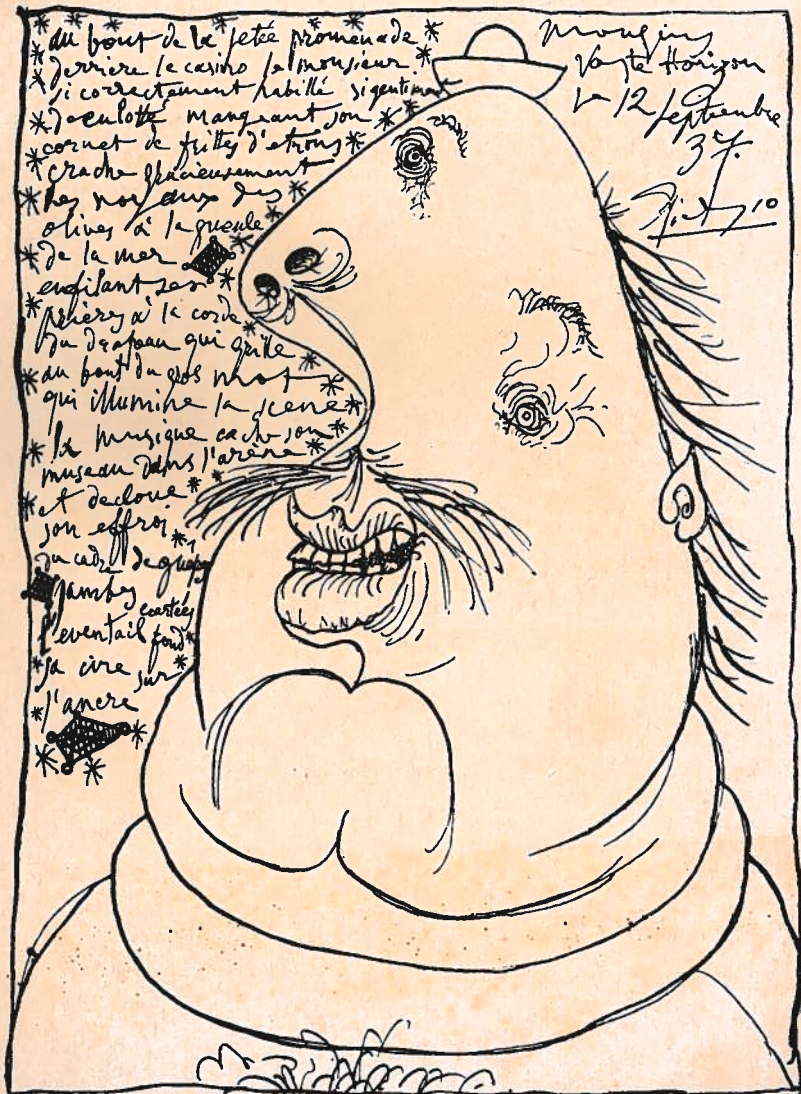 au bout de la jetée promenade
derrière le casino le monsieur
si correctement habillé si gentiment
deculotté mangeant son
cornet de frittes d'etrons
crache gracieusement
les noyaux des
olives à la gueule
de la mer
enfilant ses
prières à la corde
du drapeau qui grille
au bout du gros mot
qui illumine la scene
la musique cache son
museau dans l'arène
et decloue
son effroi
du cadre de guepes
jambes
ecartées
l'eventail fond
sa cire sur
l'ancre
Mougins
Vaste Horizon
le 12 Septembre
37.
Picasso